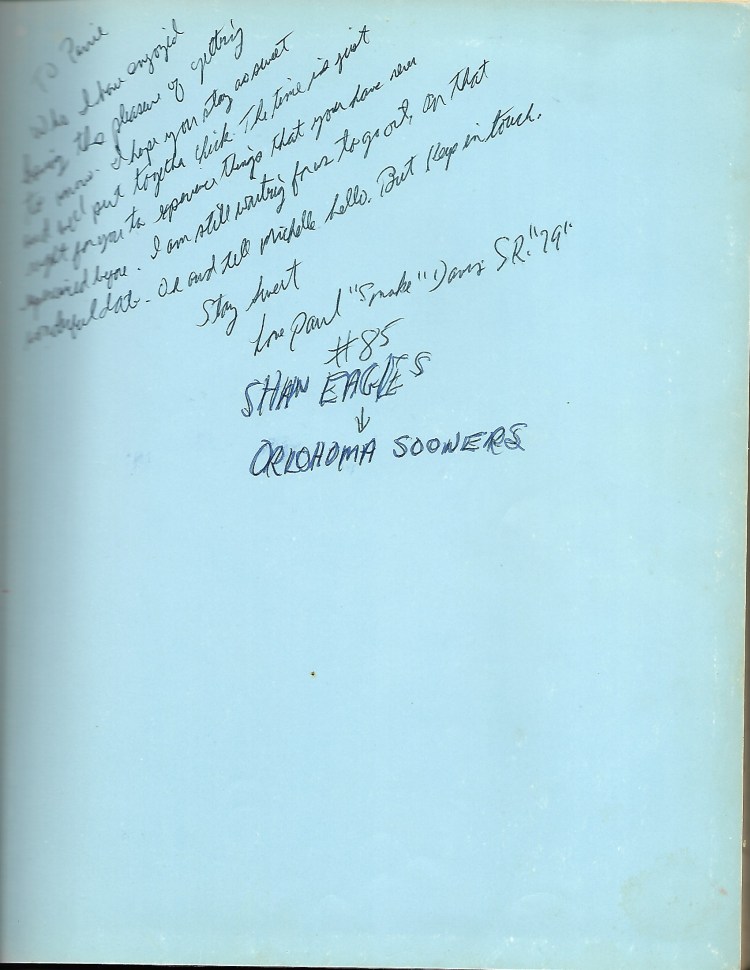 TO
Who I have enjoy'd
being the pleasure of getting
to know. I hope you stay as sweet
and well put together chick. The time is just
right for you to experience things that your have never
experienced before. I am still waiting for us to go out, on that
wonderful date. Oh and tell Michelle hello. But keep in touch.
Stay sweet
Love Paul "Smoke" Davis SR. "79"
#85
SHAW EAGLES
↓
OKLOHOMA SOONERS